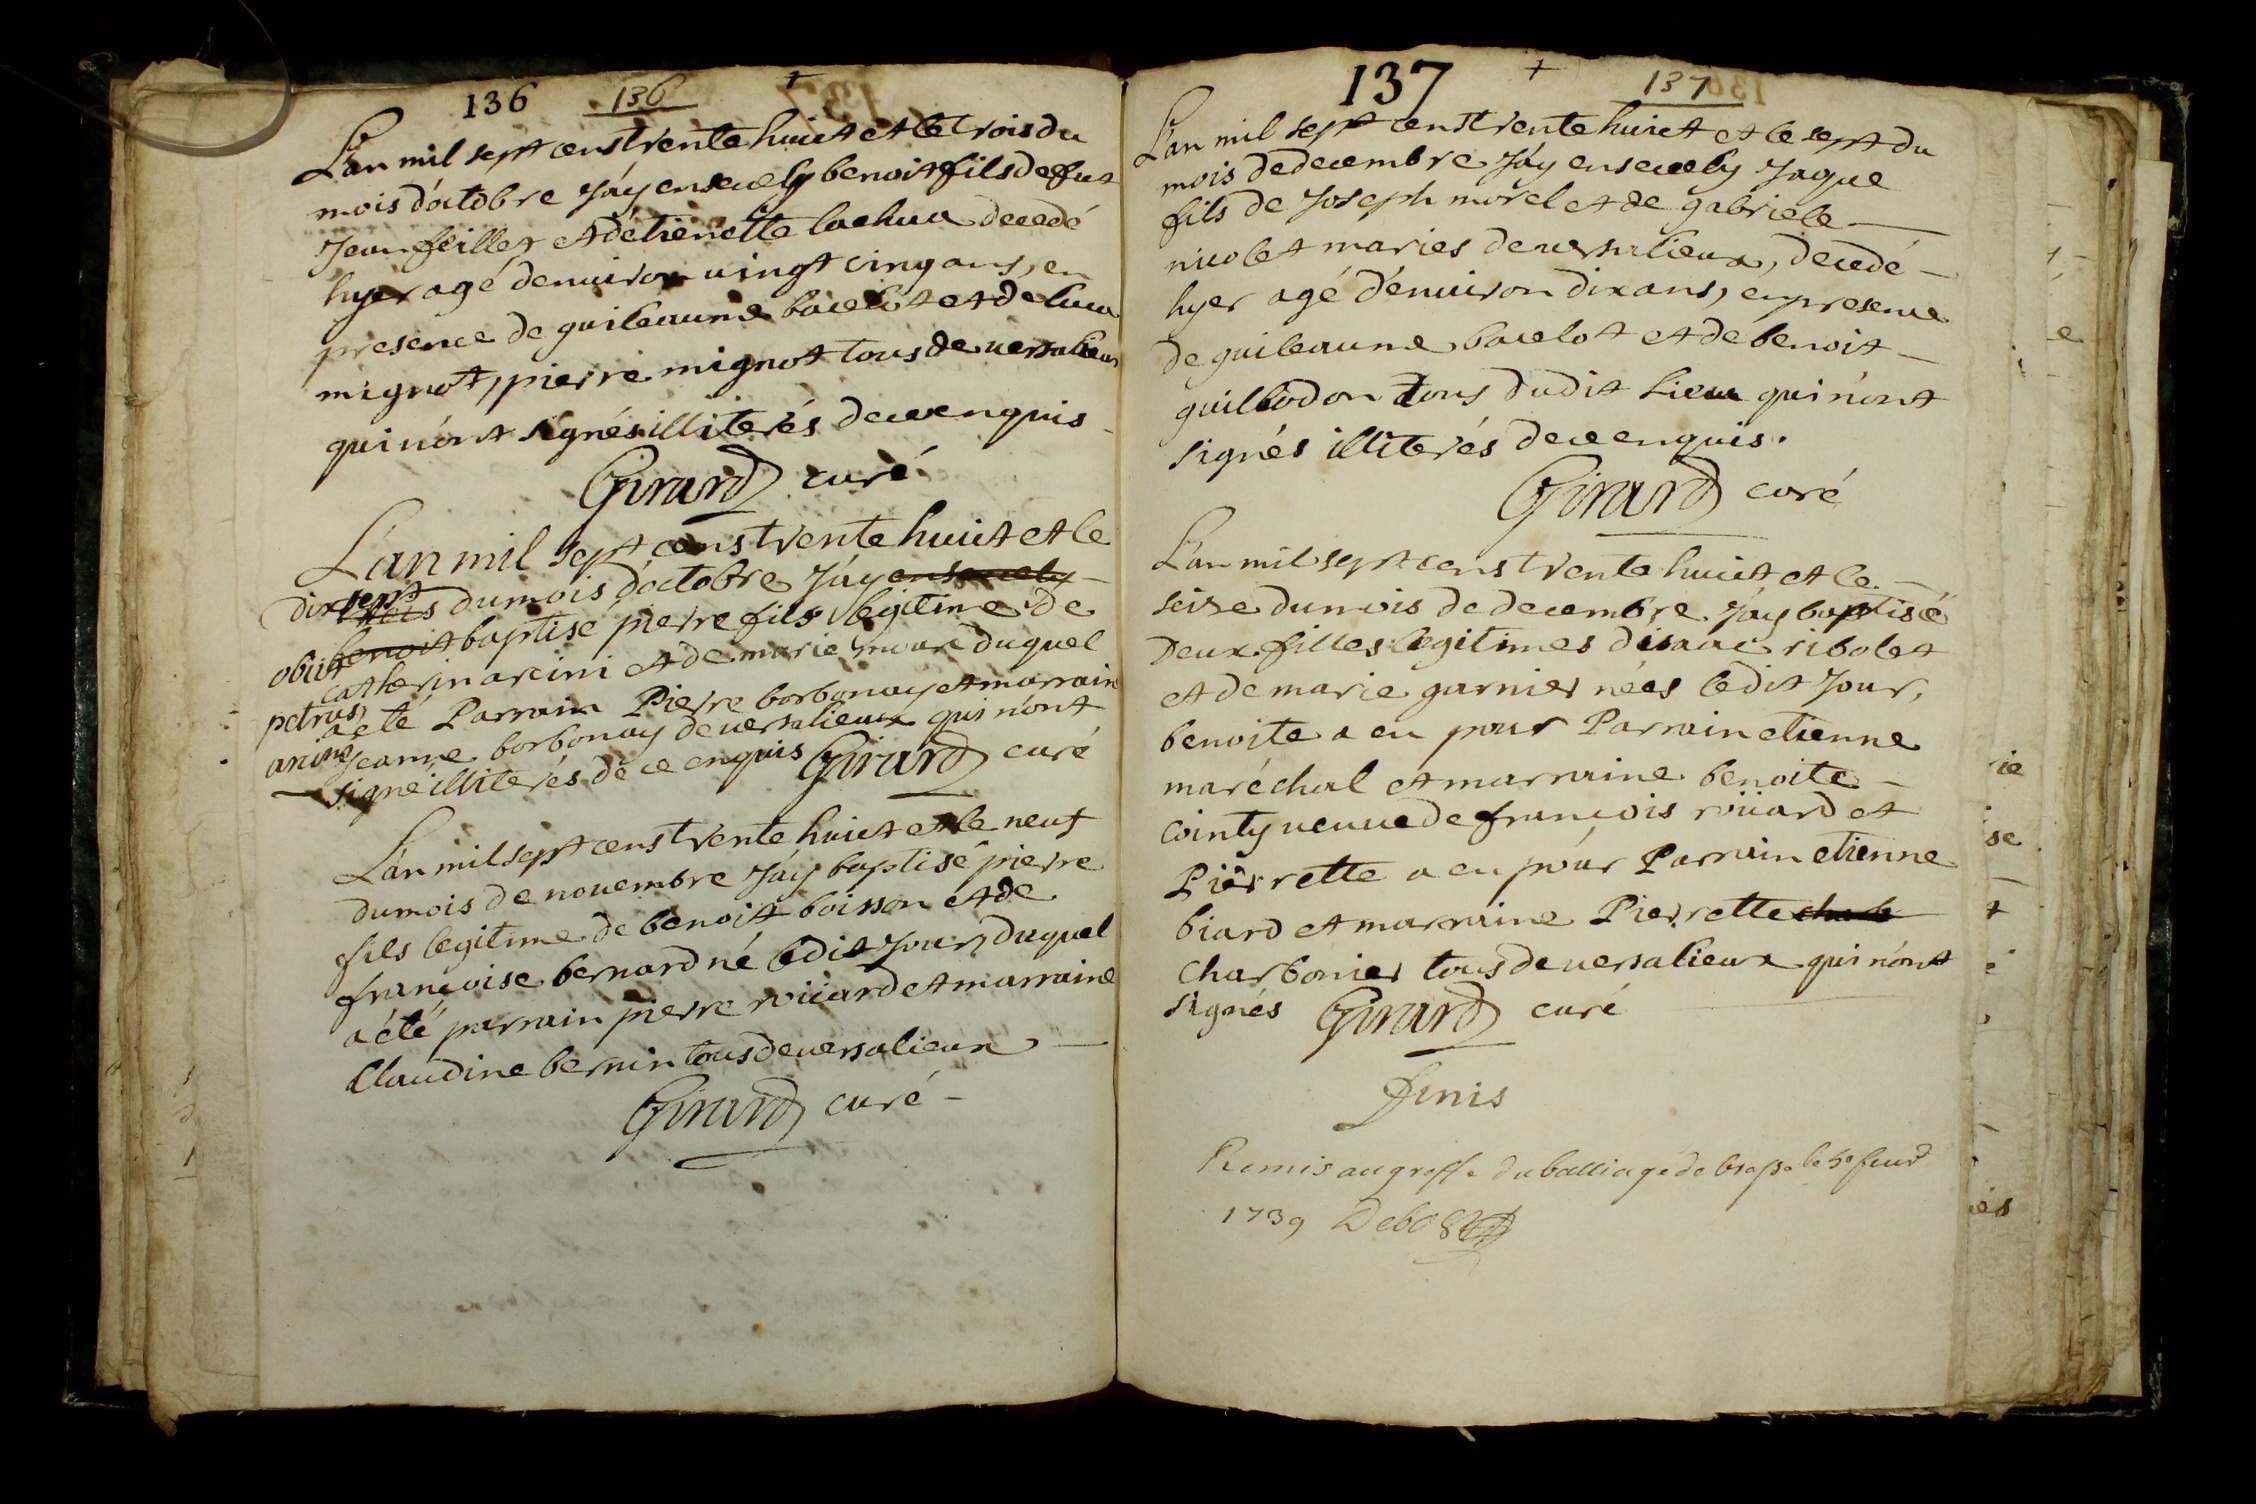 136 136 +
L'an mil sept cens trente huict et le trois du
mois d'octobre J'áy enseuely benoit fils de fut
Jean feillet et d'etienette lachua decedé
hyer agé denuiron uingt cinq ans, en
presence de guileaume bacelot et de luca
mignot, pierre mignot tous de uersalieux
qui n'ont signés illiterés de ce enquis
Girard curé
L'an mil sept cens trente huict et le
dix sept trois du mois d'octobre J'áy enseuely
benoit baptisé pierre fils legitime de
obiit
catherin arcini et de marie duquel
petrus
a eté Parrain Pierre borbonay et marrain
arcini Jeanne borbonay de uersalieux qui n'ont
signé illiterés de ce enquis Girard curé
L'an mil sept cens trente huict et le neuf
du mois de nouembre J'áy baptisé pierre
fils legitime de benoit boisson et de
françoise bernard né ledit Jour, duquel
a été parrain pierre roüard et marraine
Claudine bernin tous de uersalieux
Girard curé
137 + 137
L'an mil sept cens trente huict et le sept du
mois de decembre J'áy enseuely Jaque
fils de Joseph morel et de gabriele
nicolet maries de uersalieux, decedé
hyer agé d'enuiron dix ans, en presence
de guileaume bacelot et de benoit
guillodon tous dudit Lieux qui n'ont
signés illiterés de ce enquis.
Girard curé
L'an mil sept cens trente huict et le
seize du mois de decembre J'áy baptisé
Deux filles legitimes d'isaac ribolet
et de marie garnier nées ledit Jour,
benoite a eu pour Parrain etienne
maréchal et marraine benoite
cointy ueuue de françois roüard et
Pierrette a eu pour Parrain etienne
biard et marraine Pierrette charb
Charbonier tous de uersalieux qui n'ont
signés Girard curé
finis
Remis au greffe du balliage de bresse le 5e feur
1739 Debost